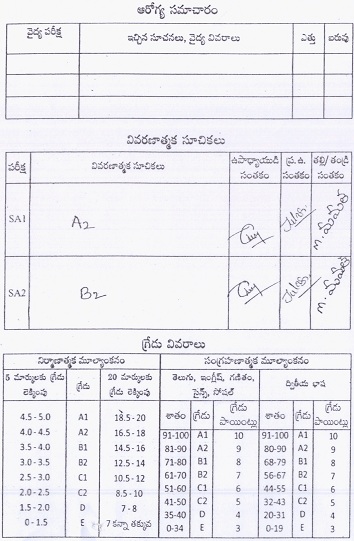 ఆరోగ్య సమాచారం
వైద్య పరీక్ష ఇచ్చిన సూచనలు, వైద్య వివరాలు ఎత్తు బరువు
వివరణాత్మక సూచికలు
పరీక్ష వివరణాత్మక సూచికలు ఉపాధ్యాయుడి సంతకం ప్ర.ఉ. సంతకం తల్లి/తండ్రి సంతకం
SA1 A2
SA2 B2
గ్రేడు వివరాలు
నిర్మాణాత్మక మూల్యాంకనం సంగ్రహణాత్మక మూల్యాంకనం
5 మార్కులకు గ్రేడు లెక్కింపు గ్రేడు 20 మార్కులకు గ్రేడు లెక్కింపు తెలుగు, ఇంగ్లీష్, గణితం, సైన్స్, సోషల్ ద్వితీయ భాష
శాతం గ్రేడు గ్రేడు పాయింట్లు శాతం గ్రేడు గ్రేడు పాయింట్లు
4.5-5.0 A1 18.5-20 91-100 A1 10 91-100 A1 10
4.0-4.5 A2 16.5-18 81-90 A2 9 80-90 A2 9
3.5-4.0 B1 14.5-16 71-80 B1 8 68-79 B1 8
3.0-3.5 B2 12.5-14 61-70 B2 7 56-67 B2 7
2.5-3.0 C1 10.5-12 51-60 C1 6 44-55 C1 6
2.0-2.5 C2 8.5-10 41-50 C2 5 32-43 C2 5
1.5-2.0 D 7-8 35-40 D 4 20-31 D 4
0-1.5 E 7 కన్నా తక్కువ 0-34 E 3 0-19 E 3